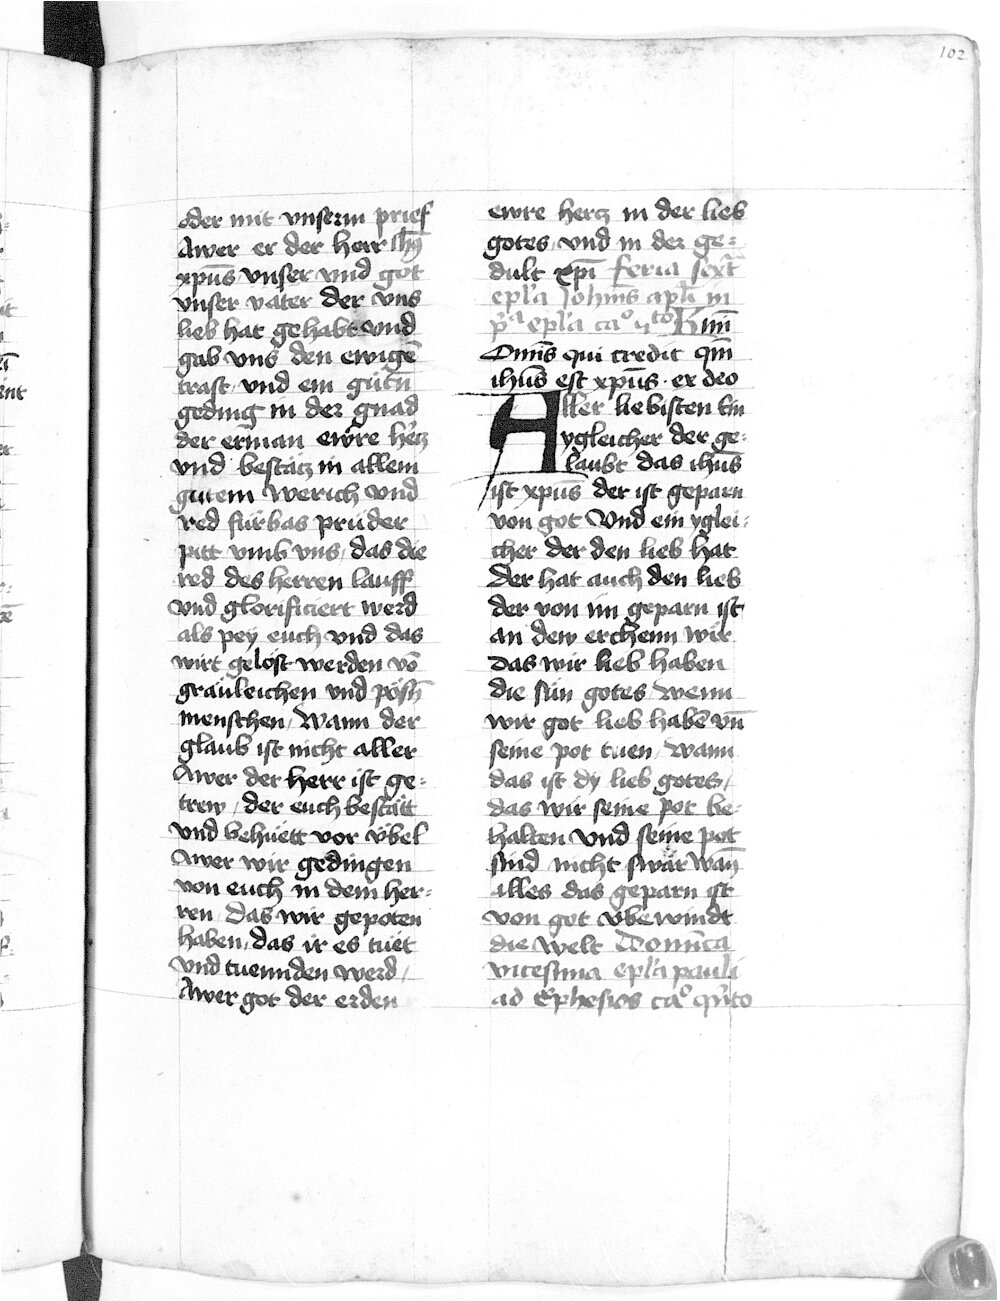 102
oder mit vnserm prief
Awer er der herr ihs
xpūs vnser vnd got
vnser vater der vns
lieb hat gehabt vnd
gab vns den ewigē
trast vnd ein gutn̄
geding in der gnad
der erman ewre hercz
vnd bestätz in allem
gutem werich vnd
red fürbas prüder
pitt vmb vns, das die
red des herren lauff
vnd glorificiert werd
als pey euch vnd das
wirt gelöst werden vō
gräuleichen vnd pösn̄
menschen, Wann der
glaub ist nicht aller
Awer der herr ist ge=
trew, der euch bestätt
vnd behüett vor vbel
Awer wir gedingen
von euch in dem her=
ren das wir gepoten
haben, das ir es tuet
vnd tuenn den werd,
Awer got der erden
ewre hercz in der lieb
gotes, vnd in der ge=
dult xpī feria sexta
epla Johnis apli in
pa epla cao vto
Omīs qui credit qm̄
ihūs est xpūs ex deo
Aller liebisten Ein
ygleicher der ge=
laubt das ihūs
ist xpūs der ist geparn
von got Vnd ein yglei=
cher der den lieb hat
der hat auch den lieb
der von im geparn ist
an dem erchenn wir
das wir lieb haben
die sün gotes wenn
wir got lieb habē vn̄
seine pot tuen, Wann
das ist dy lieb gotes,
das wir seine pot be=
halten vnd seine pot
sind nicht swär Wan̄
alles das geparn ist
von got vbewindt
die welt Domīca
vicesima epla pauli
ad Ephesios cao qūto